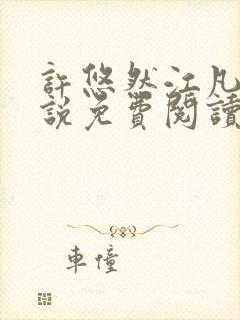 許悠然江凡
說免費閱讀
車憧